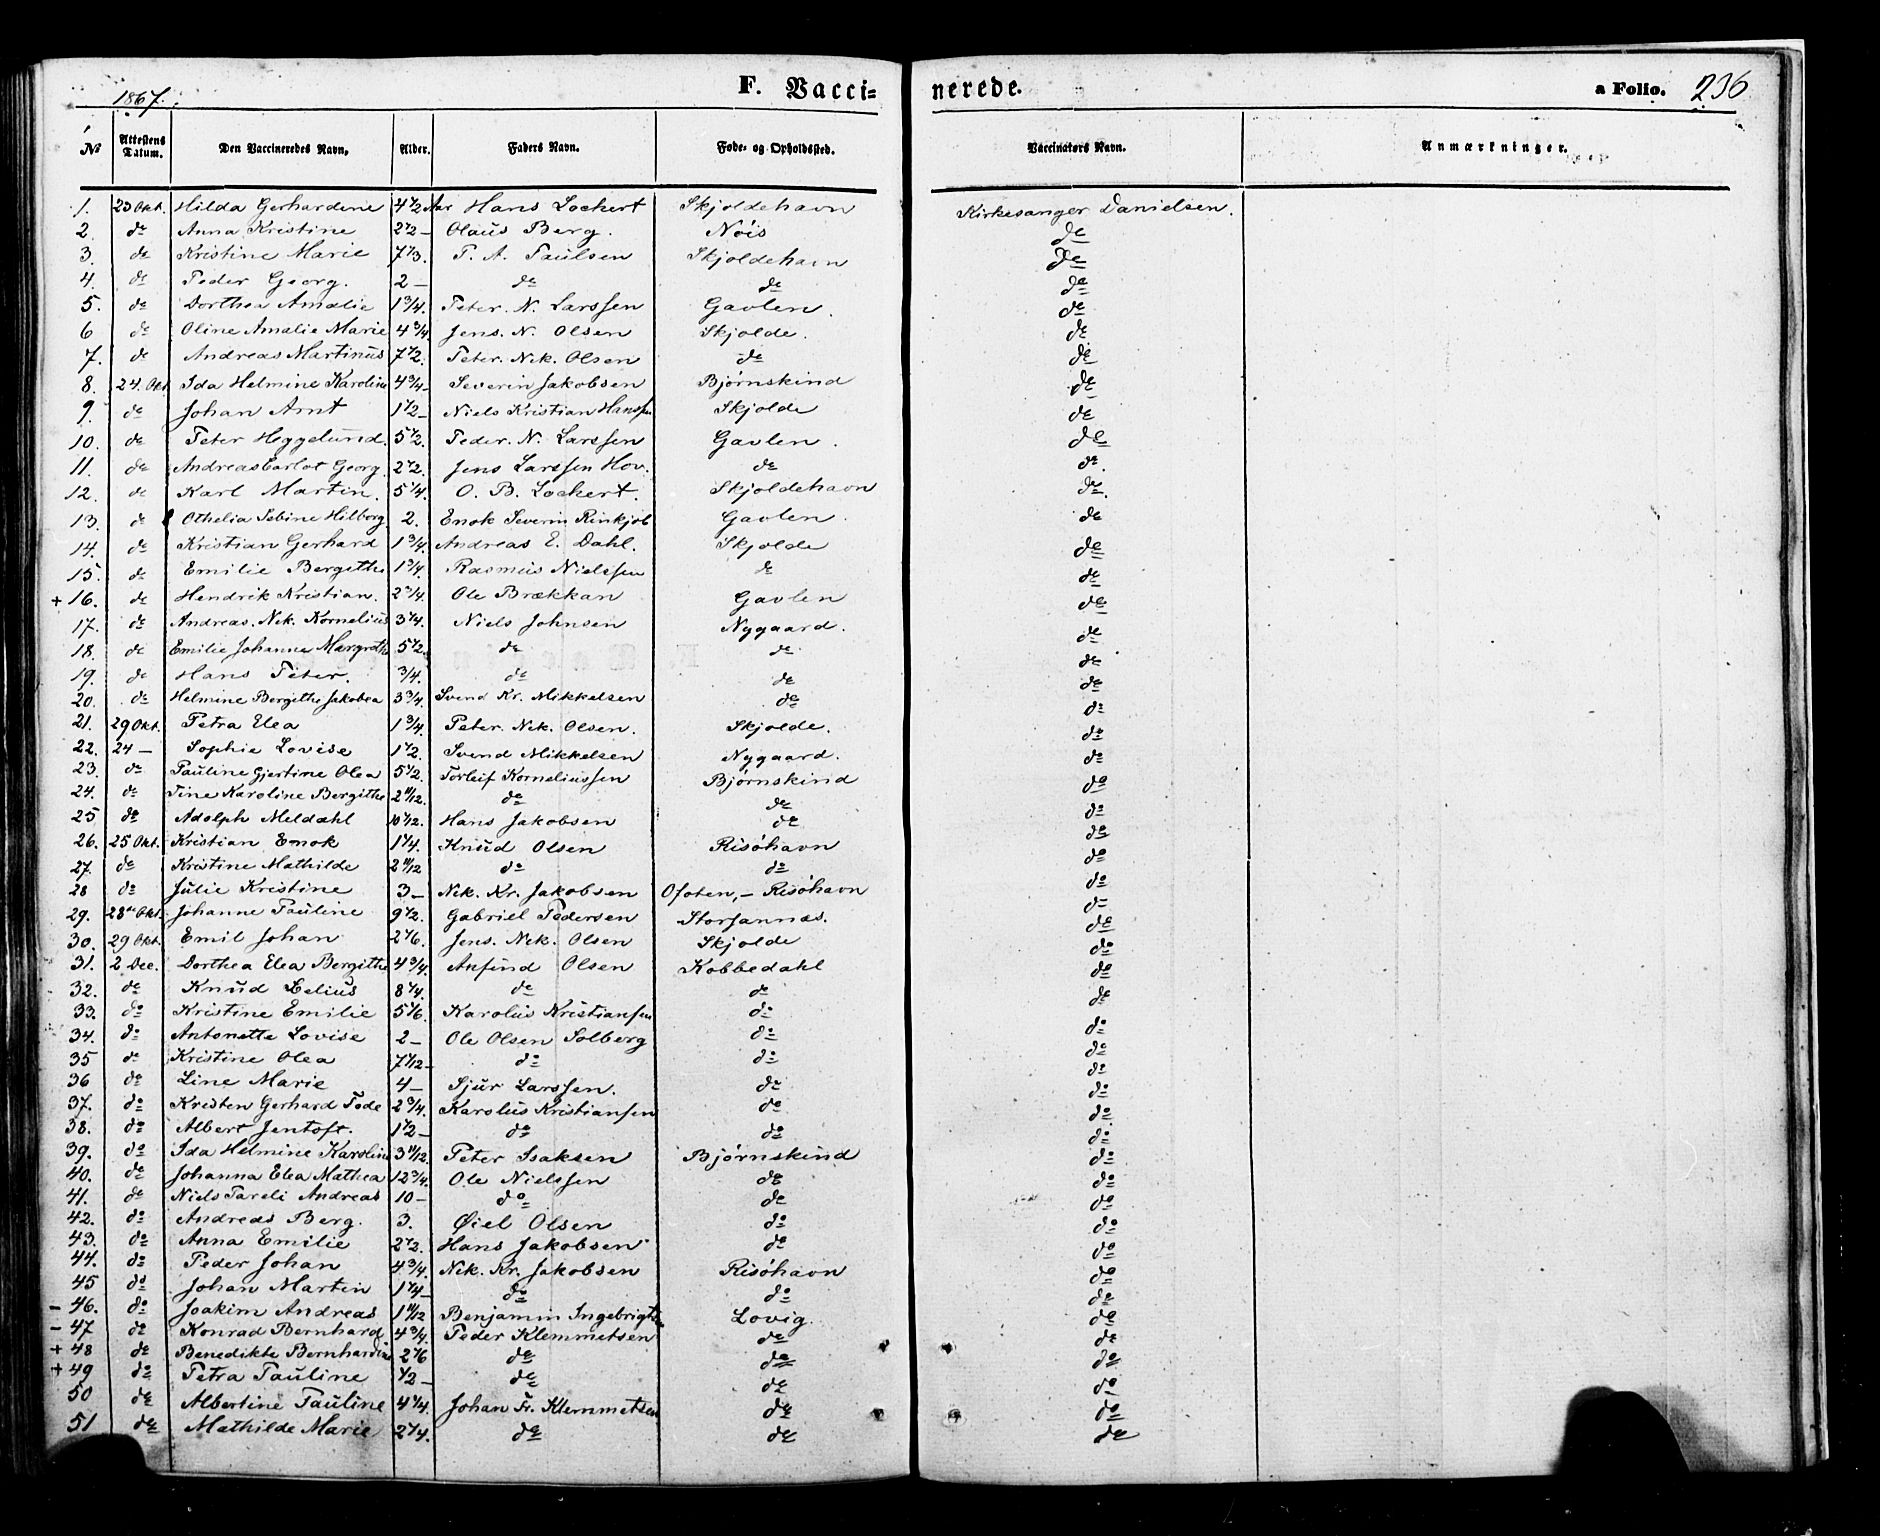 1867. F. Vacci- nerede. a Folio. 236
№ Attestens Datum. Den Vaccineredes Navn. Alder. Faders Navn. Føde- og Opholdssted. Vaccinators Navn. Anmærkninger.
1. 23 Okt. Hilda Gerhardine 4 1/2 Aar Hans Lockert Skjoldehavn Kirkesanger Danielsen.
2. do Anna Kristine 2 1/2 — Olaus Berg. Nöis do
3. do Kristine Marie 7 1/3. P. A. Paulsen Skjoldehavn do
4. do Peder Georg. 2 — do do do
5. do Dorthea Amalie 1 3/4. Peter. N. Larssen Gavlen. do
6 do Oline Amalie Marie 4 3/4. Jens. N. Olsen Skjolde. do
7. do Andreas Martinus 7 1/2. Peter. Nik. Olsen do do
8. 24. Okt Ida Helmine Karoline 4 3/4 — Severin Jakobsen Bjørnskind do
9. do Johan Arnt 1 1/2 — Niels Kristian Hanssen Skjolde do
10. do Peter Heggelund. 5 1/2. Peder. N. Larssen Gavlen. do
11. do Andreas Carlot Georg. 2 1/2. Jens Larssen Hov. do do.
12. do Karl Martin. 5 1/4. O. B. Lockert. Skjoldehavn do.
13. do Othelia Sebine Hilborg 2. Enok Severin Rinkjøb Gavlen. do
14. do Kristian Gerhard 1 3/4. Andreas E. Dahl. Skjolde do
15. do Emilie Bergithe 1 3/4. Rasmus Nielssen do do
+ 16. do Hendrik Kristian. 2 3/4. Ole Brækkan Gavlen do
17. do Andreas. Nik. Kornelius 3 1/4. Niels Johnsen Nygaard. do
18. do Emilie Johanne Margrethe 5 1/2. do do do
19. do Hans Peter. 3/4. do do do
20. do Helmine Bergithe Jakobea 3 3/4. Svend Kr. Mikkelsen do do
21. 29 Okt. Petra Elea 1 3/4. Peter. Nik. Olsen. Skjolde. do
22. 24 — Sophie Lovise 1 1/2. Svend Mikkelsen Nygaard. do
23. do Pauline Gjertine Olea 5 1/2. Torleif Korneliussen Bjørnskind do
24. do Tine Karoline Bergithe 2 11/12. do do do
25 do Adolph Meldahl 10 1/12. Hans Jakobsen do do
26. 25 Okt. Kristian Enok 1 1/4. Knud Olsen Risöhavn do
27. do Kristine Mathilde 2 11/12 do do do
28 do Julie Kristine 3 — Nik. Kr. Jakobsen Ofoten, — Risöhavn do
29. 28de Okt. Johanne Pauline 9 1/2. Gabriel Pedersen Storjannæs. do
30. 29 Okt. Emil Johan 2 1/6. Jens. Nik. Olsen Skjolde do
31. 2 Dec. Dorthea Elea Bergithe 4 3/4. Anfind Olsen Kobbedahl do
32. do Knud Zelius 8 1/4. do do do
33. do Kristine Emilie 5 1/6. Karolus Kristiansen do do
34. do Antonette Lovise 2 — Ole Olsen Solberg do do
35 do Kristine Olea 7 1/12 — do do do
36 do Line Marie 4 — Sjur Larssen. do do
37. do Kristen Gerhard Tode 2 3/4. Karolus Kristiansen do do
38. do Albert Jentoft. 1 1/2 — do do do
39. do Ida Helmine Karoline 3 11/12. Peter Isaksen Bjørnskind do
40. do Johanna Elea Mathea 12 3/4. Ole Nielssen do do
41. do Niels Pareli Andreas 10 — do do do
42. do Andreas Berg. 3. Øiel Olsen do do
43. do Anna Emilie 2 1/2. Hans Jakobsen do do
44. do Peder Johan 4 3/4. Nik. Kr. Jakobsen Risöhavn do
45 do Johan Martin 1 1/4 — do do do
- 46. do Joakim Andreas 1 11/12 Benjamin Ingebrigts Lovig. do
- 47 do Konrad Bernhard 4 3/4. Peder Klemmetsen do do
+ 48 do Benedikte Bernhardine 2 1/6 do do do
+ 49 do Petra Pauline 1/2 — do do do
50 do Albertine Pauline 4 1/4. Johan Fr. Klemmetsen do do
51 do Mathilde Marie 2 1/4. do do do